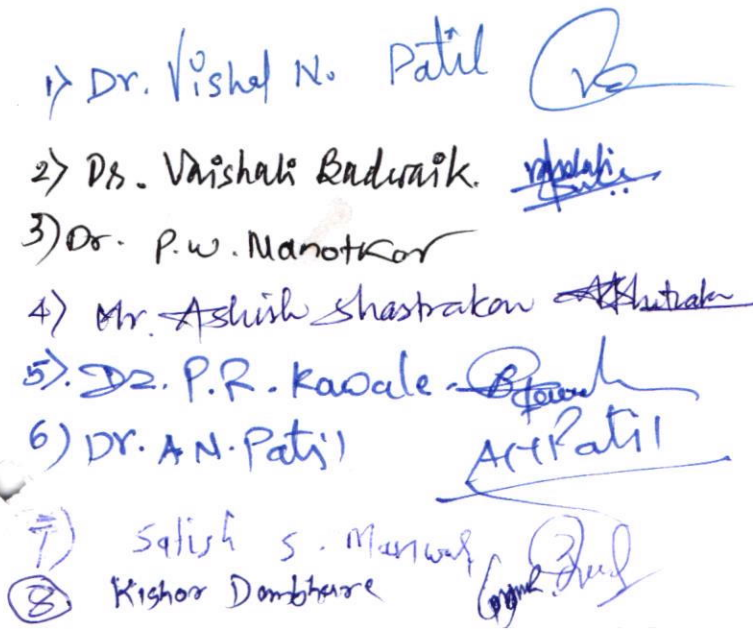 1) Dr. Vishal N. Patil
2) Dr. Vaishali Badwaik.
3) Dr. P.W. Manotkor
4) Mr. Ashish Shastrakar
5). Dr. P.R. Kawale.
6) Dr. A N. Patil AHPatil
7) Satish S.
8 Kishor Dombhare